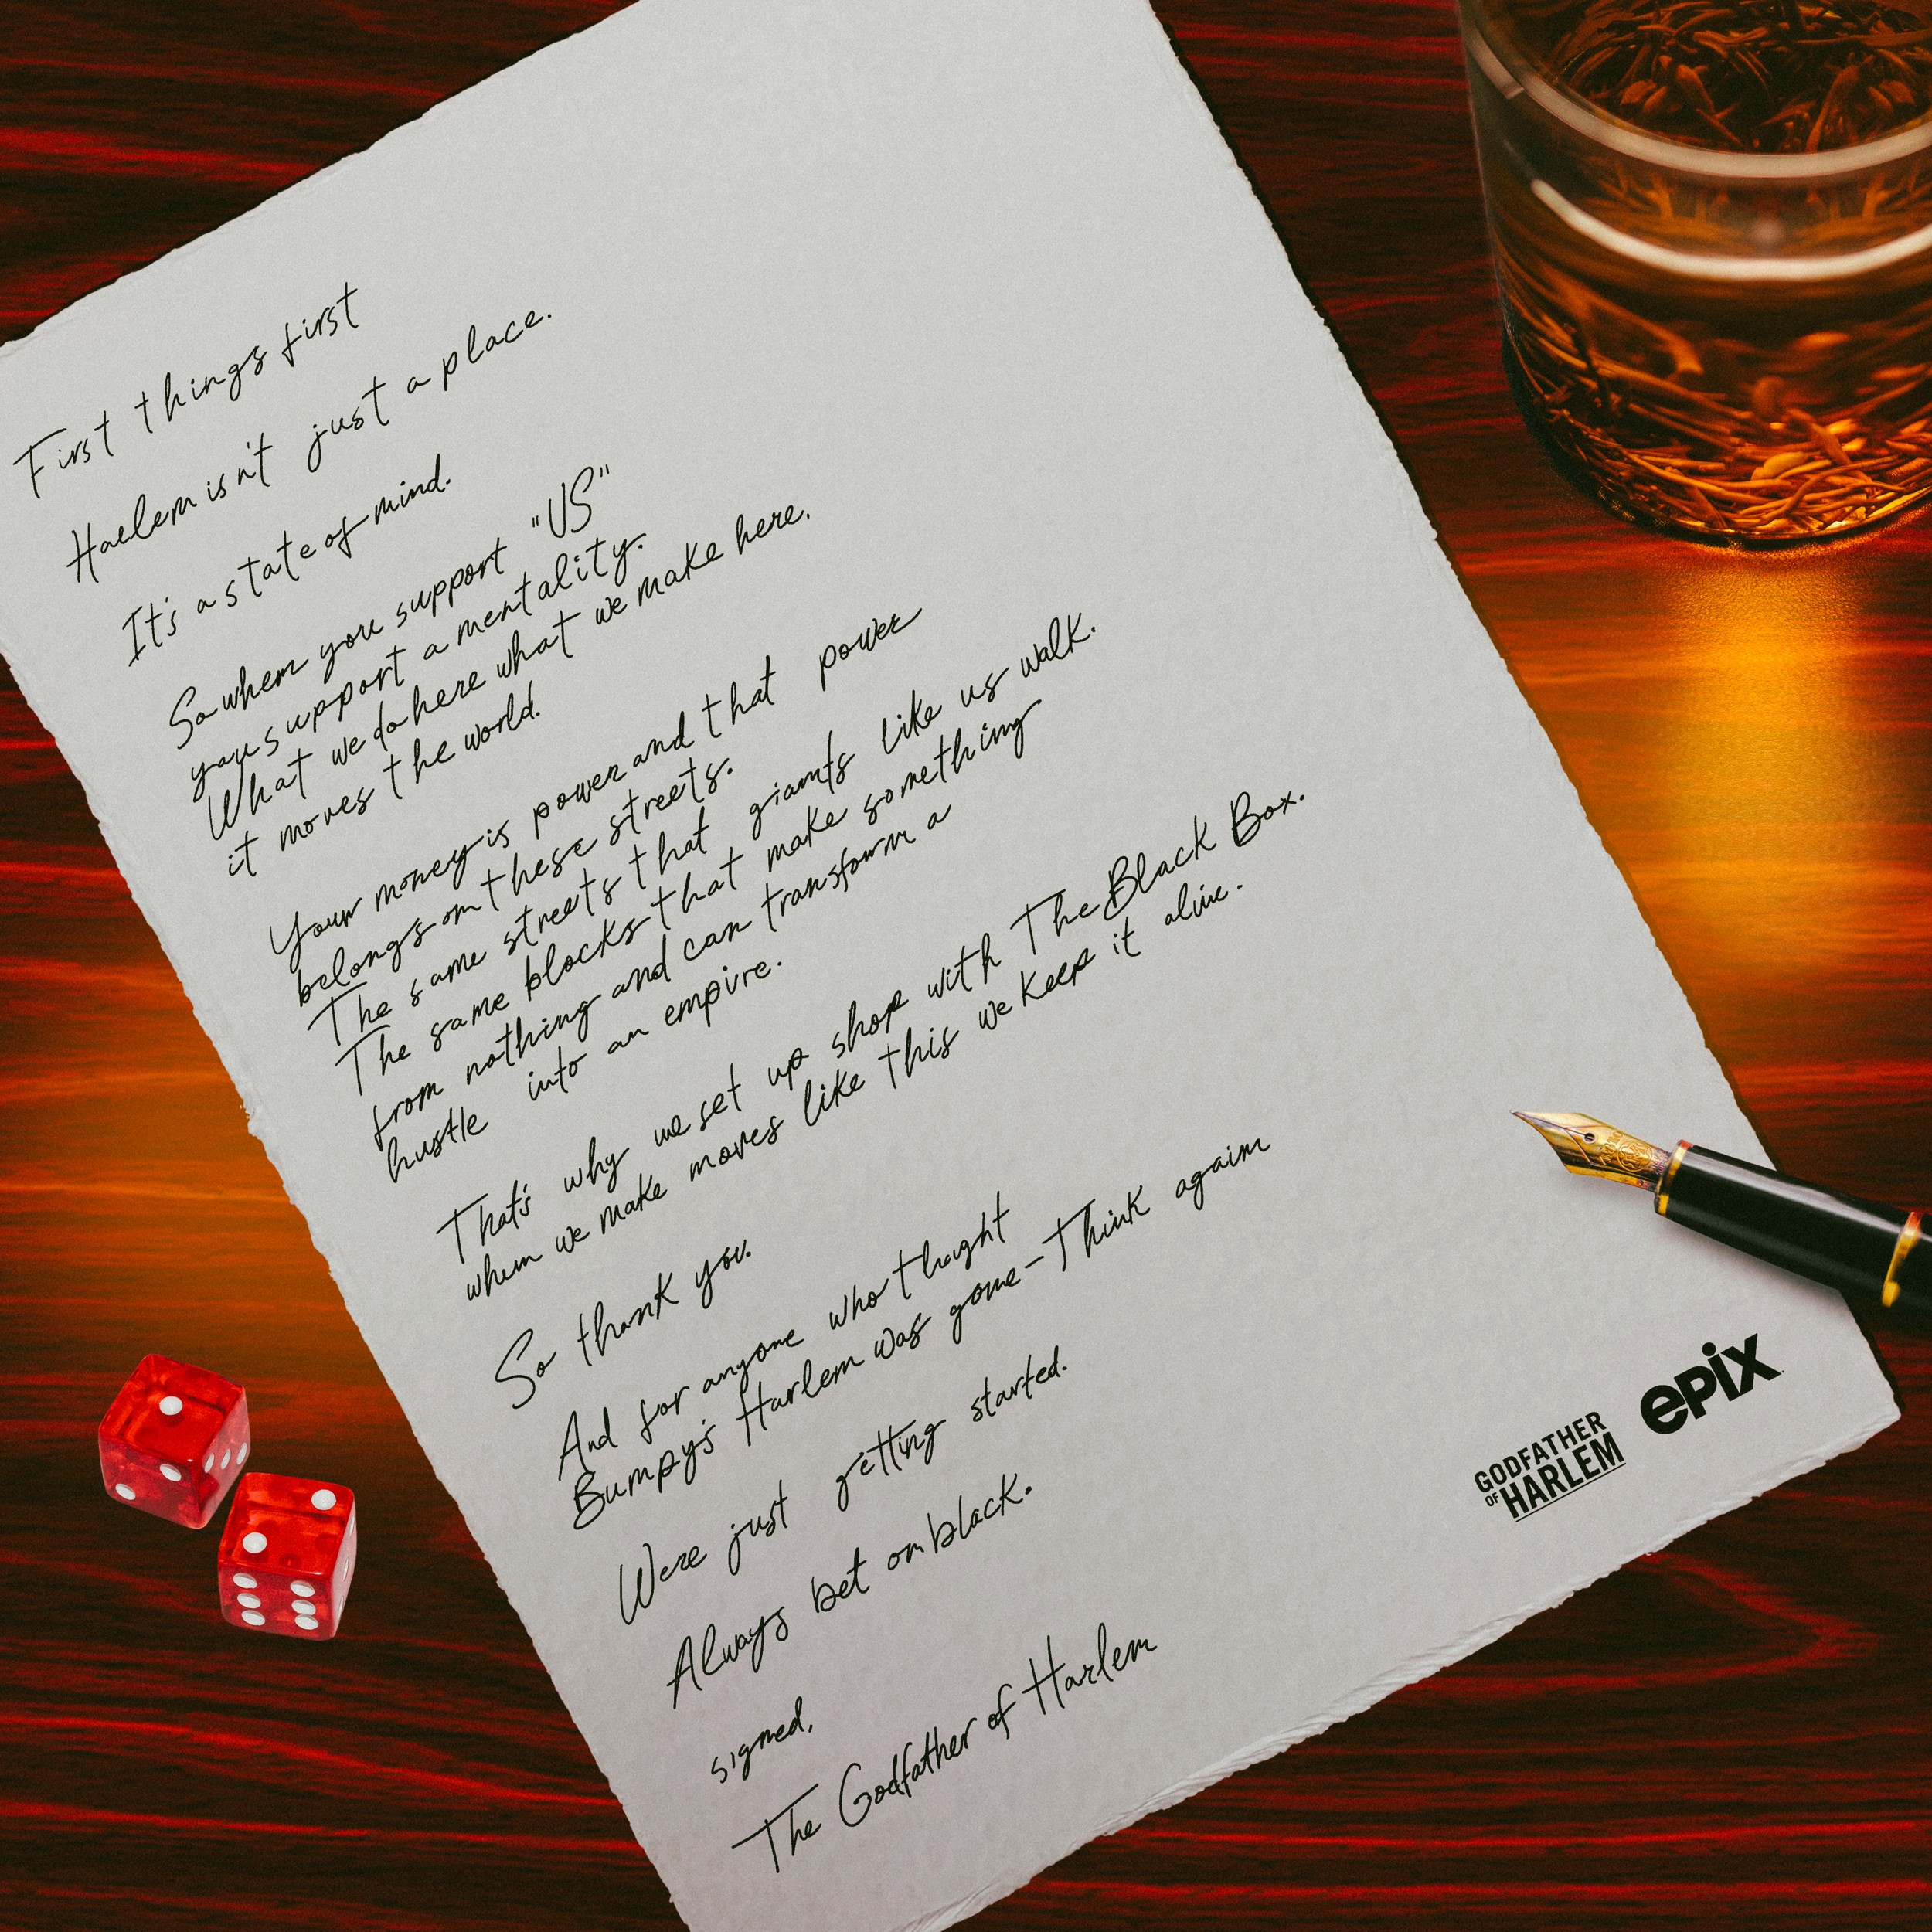 First things first
Harlem isn't just a place.
It's a state of mind.
So when you support "US"
you support a mentality.
What we do here what we make here,
it moves the world.
Your money is power and that power
belongs on these streets.
The same streets that giants like us walk.
The same blocks that make something
from nothing and can transform a
hustle into an empire.
That's why we set up shop with The Black Box.
when we make moves like this we keep it alive.
So thank you.
And for anyone who thought
Bumpy's Harlem was gone - Think again
We're just getting started.
Always bet on black.
signed,
The Godfather of Harlem
GODFATHER
OF HARLEM
epix